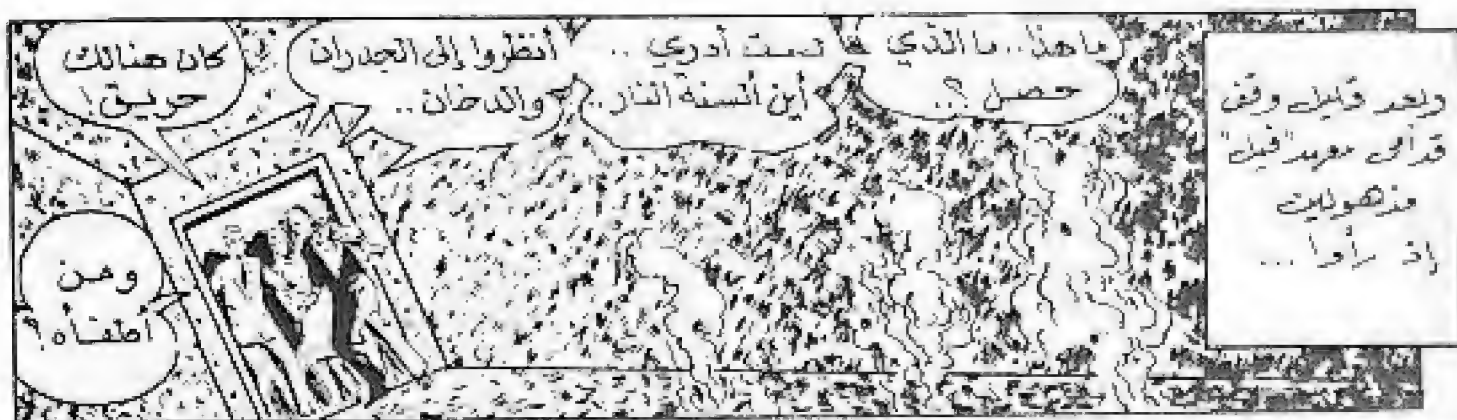 وبعد قليل وقف
قدامى معبد "فيل"
مذهولين
إذ رأوا ...
ما هذا .. ما الذي
حصل ؟..
لست أدري ..
أين ألسنة النار ..
أنظروا إلى الجدران
والدخان ..
كان هنالك
حريق !
ومن
أطفأه ؟